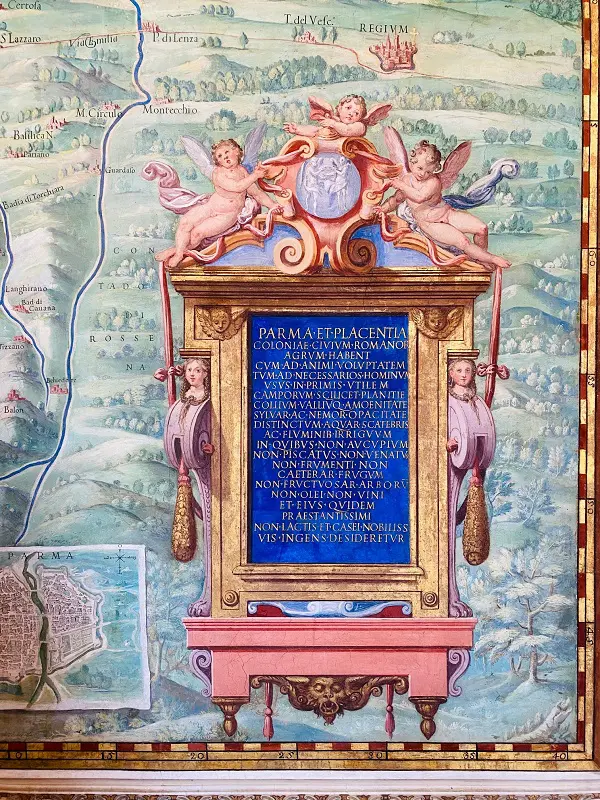 Certosa
T. del Vesc.
REGIVM
S Lazzaro
Via Emilia
P. di Lenza
M. Circulo
Montecchio
Basilica N.
Guardaso
Badia di Torchiara
CON
TADO
DI
ROSSE
NA
Langhirano
Bad. di
Cauana
Balon
PARMA·ET·PLACENTIA
COLONIAE·CIVIVM·ROMANOR
AGRVM·HABENT
CVM·AD·ANIMI·VOLVPTATEM
TVM·AD·NECESSARIOS·HOMINVM
VSVS·IN·PRIMIS·VTILEM
CAMPORVM·SCILICET·PLANITIE
COLLIVM·VALLIVQ·AMOENITATE
SYLVAR·AC·NEMOR·OPACITATE
DISTINCTVM·AQVAR·SCATEBRIS
AC·FLVMINIB·IRRIGVVM
IN·QVIBVS·NON·AVCVPIVM
NON·PISCATVS·NON·VENATV
NON·FRVMENTI·NON
CAETERAR·FRVGVM
NON·FRVCTVOSAR·ARBORV̄
NON·OLEI·NON·VINI
ET·EIVS·QVIDEM
PRAESTANTISSIMI
NON·LACTIS·ET·CASEI·NOBILISS
VIS·INGENS·DESIDERETVR
PARMA
15 20 25 30 35 40